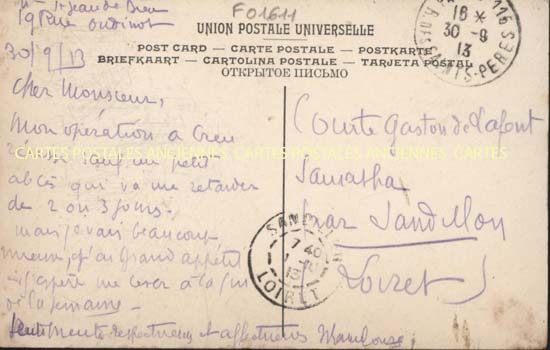 St Jean de Dieu
19 Rue Oudinot
30/9/13
F01611
UNION POSTALE UNIVERSELLE
POST CARD – CARTE POSTALE – POSTKARTE
BRIEFKAART – CARTOLINA POSTALE – TARJETA POSTAL
ОТКРЫТОЕ ПИСЬМО
16 *
30 - 9
13
R. DES SAINTS-PERES
Cher Monsieur,
Mon opération a
sauf un petit
abcès qui va me retarder
de 2 ou 3 jours.
mais je vais beaucoup
mieux, j'ai grand appétit
j'espère me lever à la fin
de la semaine -
Sentiments respectueux et affectueux
CARTES POSTALES ANCIENNES CARTES POSTALES ANCIENNES CARTES
Comte Gaston de Lafont
Samatha
par Sandillon
Loiret
7 40
13
LOIRET